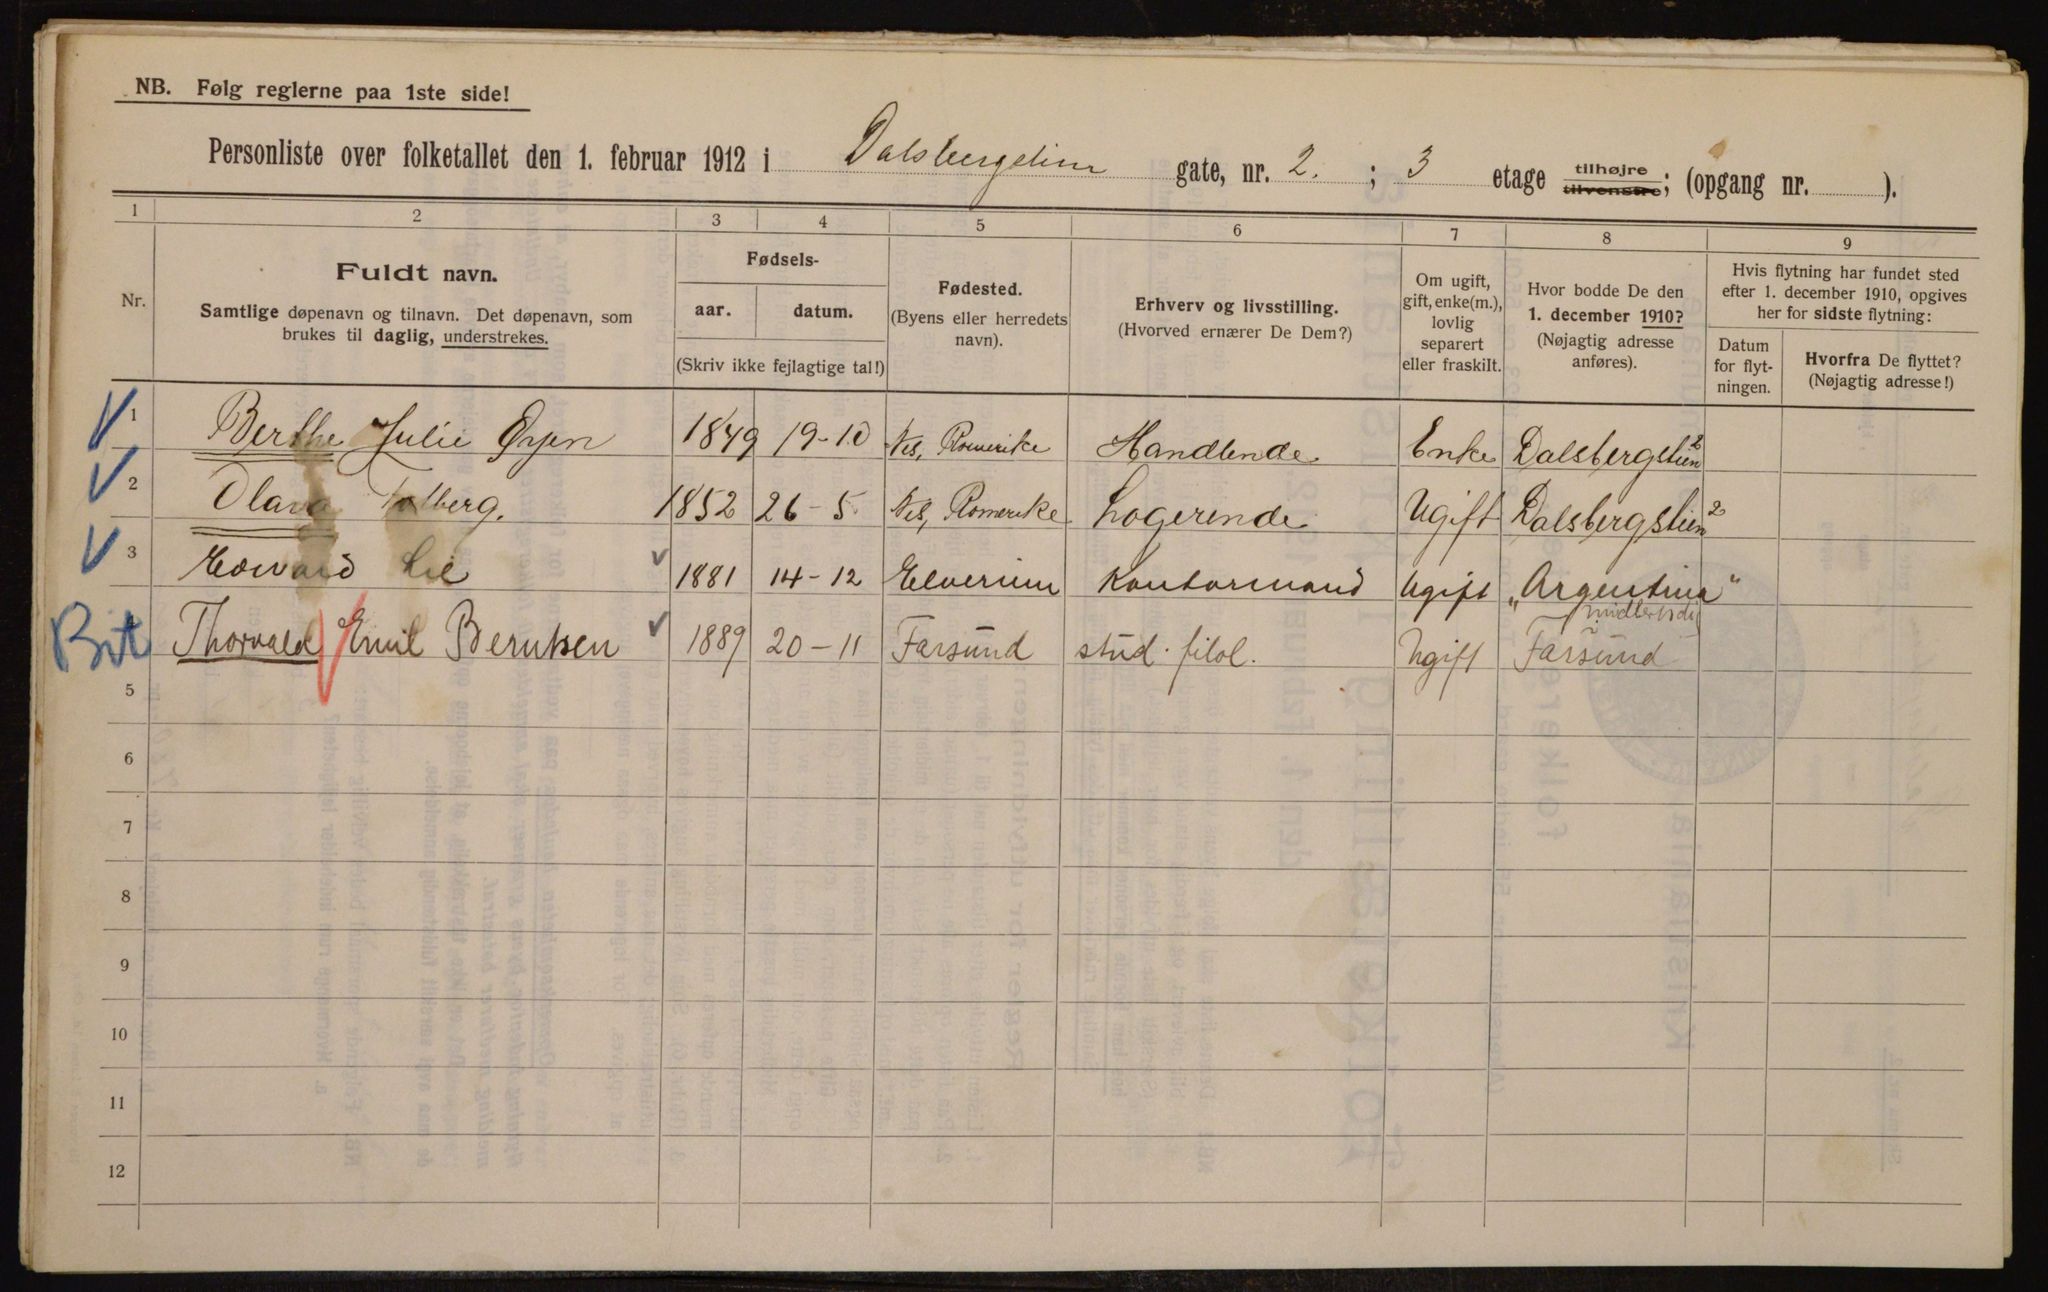 NB. Følg reglerne paa 1ste side!
Personliste over folketallet den 1. februar 1912 i Dalsbergstien gate, nr. 2. ; 3 etage tilhøjre tilvenstre; (opgang nr. ).
1 2 3 4 5 6 7 8 9
Nr.
Fuldt navn.
Samtlige døpenavn og tilnavn. Det døpenavn, som
brukes til daglig, understrekes.
Fødsels-
aar. datum.
(Skriv ikke fejlagtige tal!)
Fødested.
(Byens eller herredets
navn).
Erhverv og livsstilling.
(Hvorved ernærer De Dem?)
Om ugift,
gift, enke(m.),
lovlig
separert
eller fraskilt.
Hvor bodde De den
1. december 1910?
(Nøjagtig adresse
anføres).
Hvis flytning har fundet sted
efter 1. december 1910, opgives
her for sidste flytning:
Datum
for flyt-
ningen.
Hvorfra De flyttet?
(Nøjagtig adresse!)
1 Berthe Julie 1849 19-10 Nes, Romerike Handlende Enke Dalsbergstien 2
2 Olava 1852 26-5 Nes, Romerike Logerende Ugift Dalsbergstien 2
3 Edvard Lie 1881 14-12 Elverum Kontormand Ugift "Argentina"
midlertidig
Bit Thorvald Emil Berntsen 1889 20-11 Farsund stud. filol. Ugift Farsund
5
6
7
8
9
10
11
12